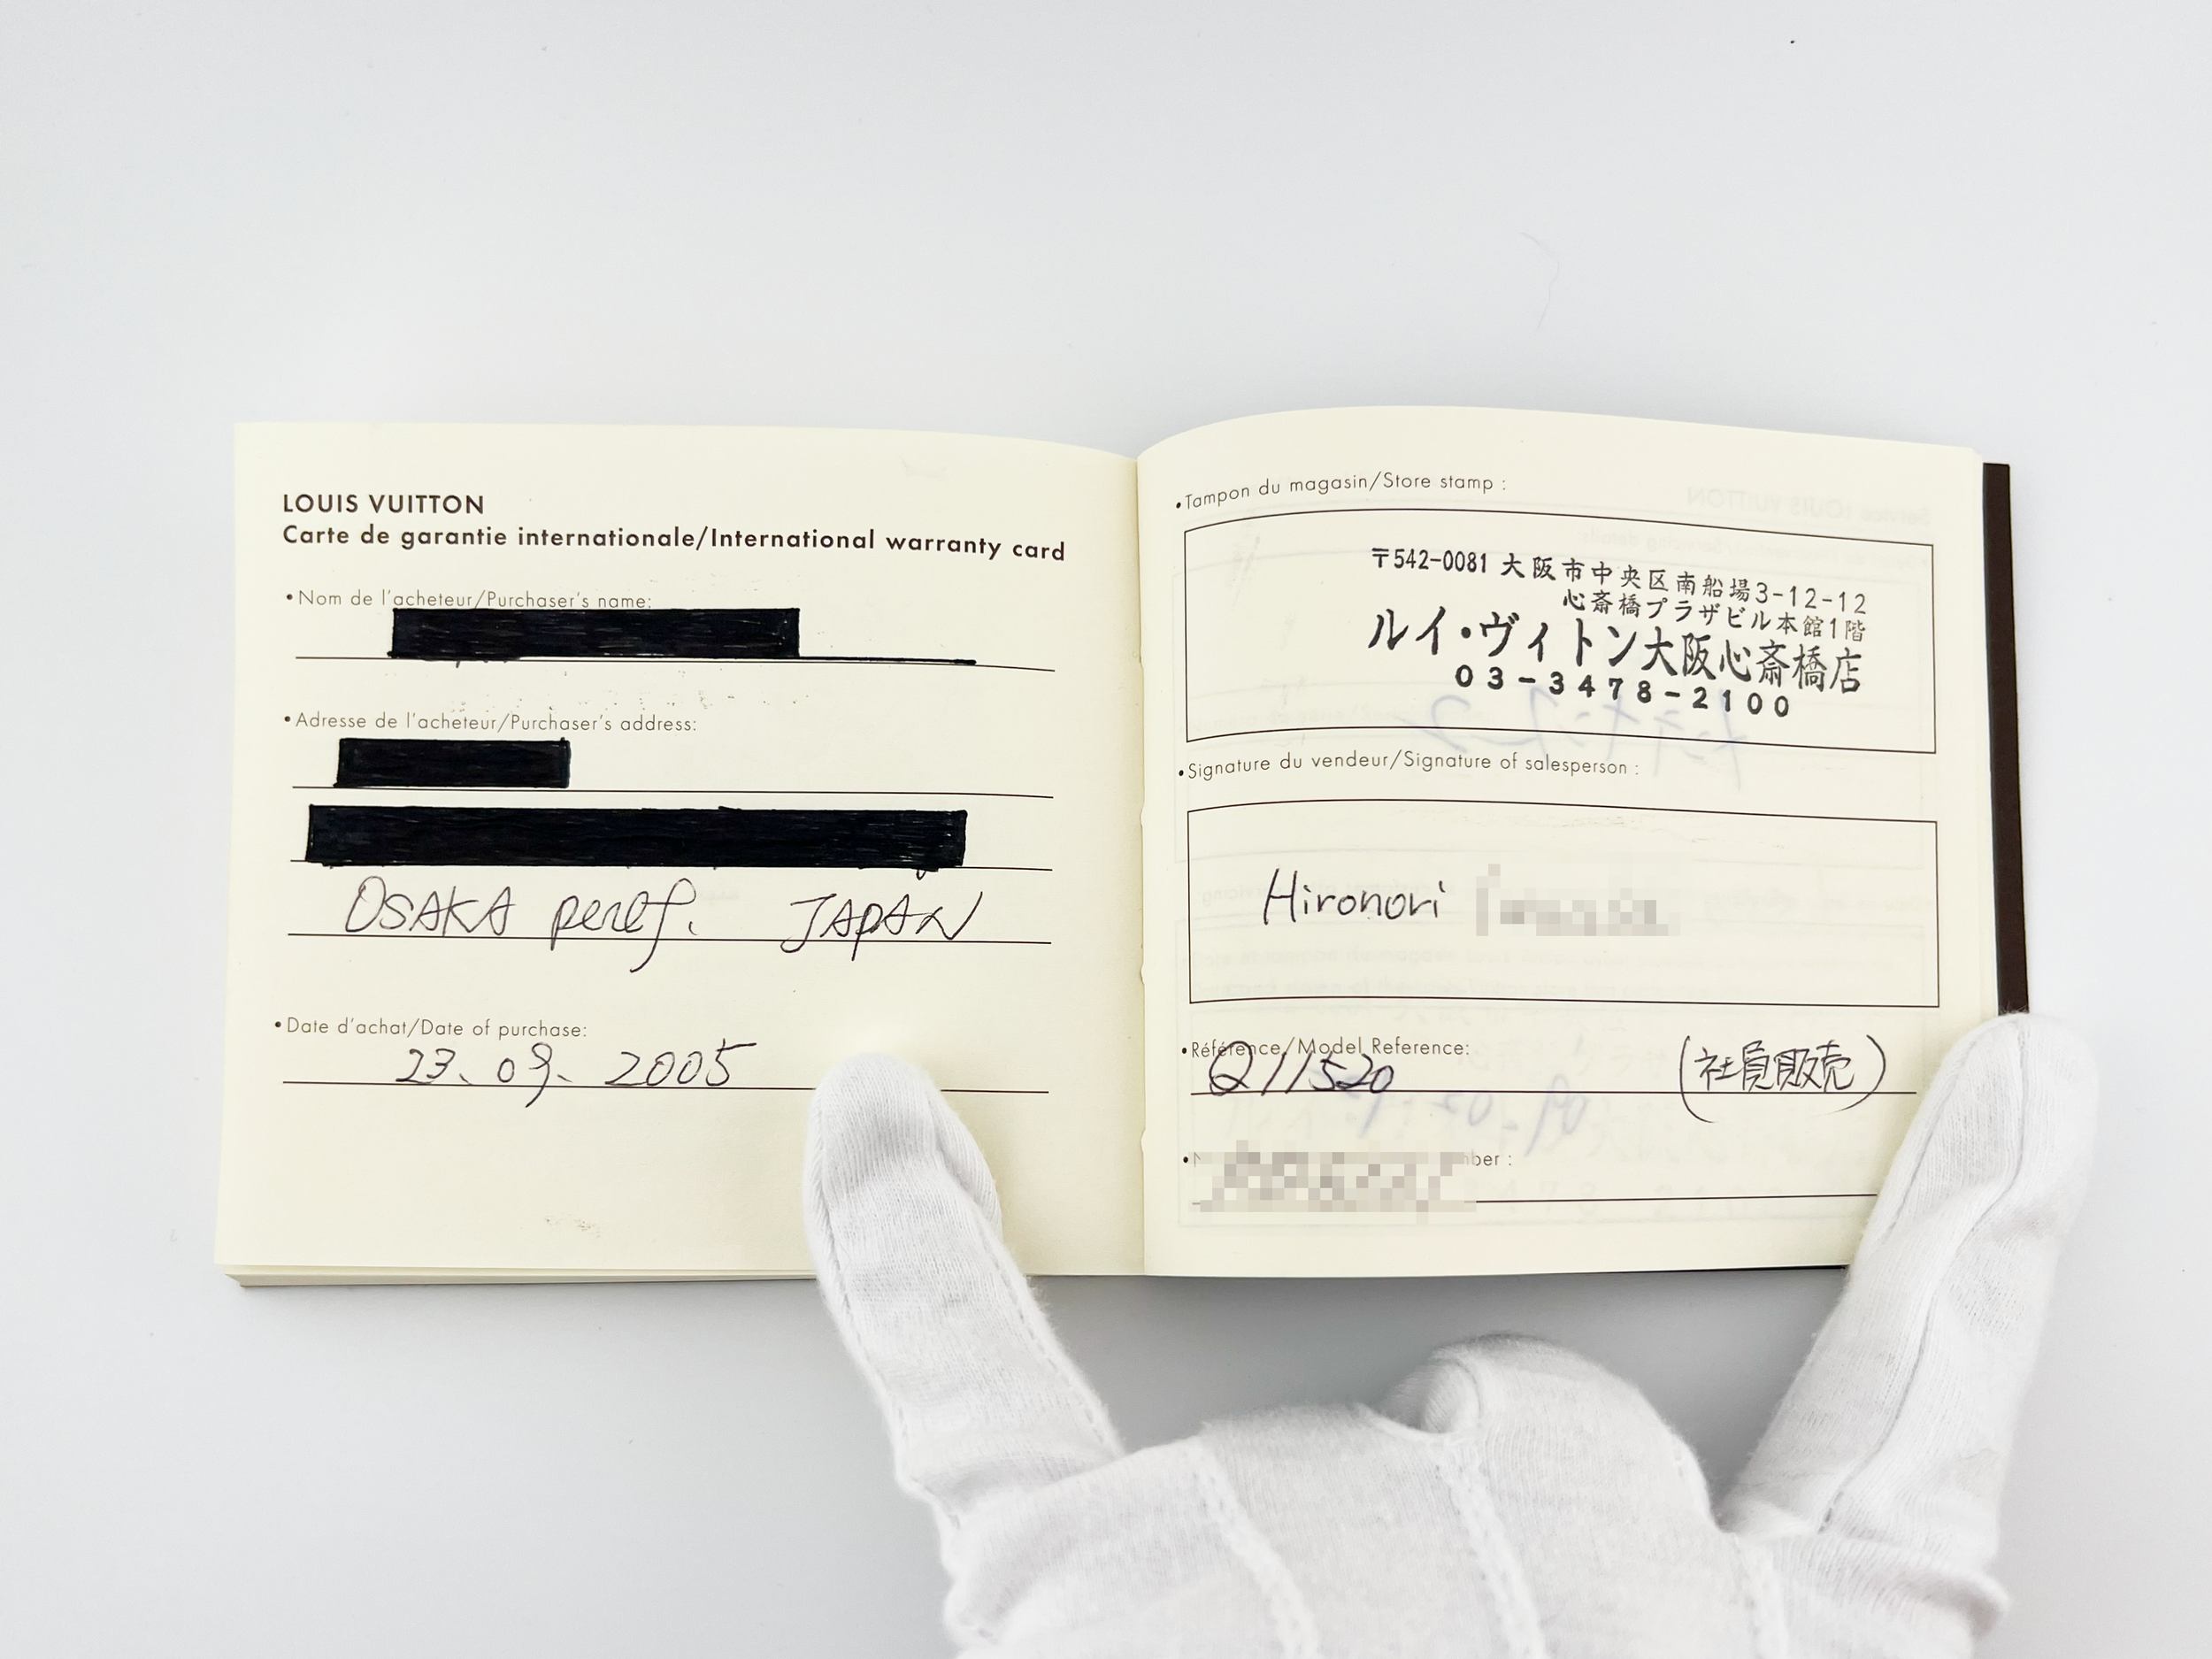 LOUIS VUITTON
Carte de garantie internationale/International warranty card
•Nom de l'acheteur/Purchaser's name:
•Adresse de l'acheteur/Purchaser's address:
OSAKA peref. JAPAN
•Date d'achat/Date of purchase:
23. 09. 2005
•Tampon du magasin/Store stamp :
〒542-0081 大阪市中央区南船場3-12-12
心斎橋プラザビル本館1階
ルイ・ヴィトン大阪心斎橋店
03-3478-2100
•Signature du vendeur/Signature of salesperson :
Hironori
•Référence/Model Reference:
Q11520 (社員販売)